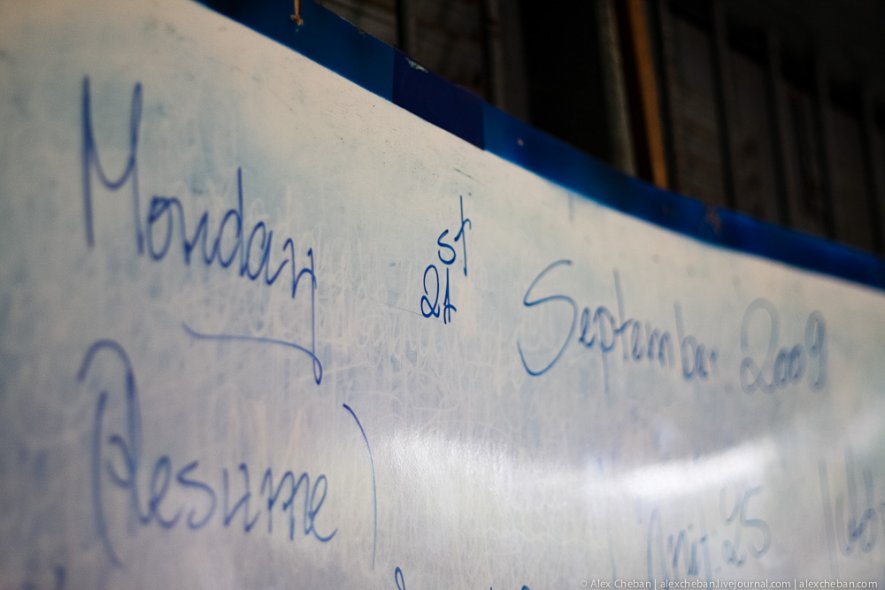 Monday 21st September 2009
Resume)
Unit. 25
© Alex Cheban | alexcheban.livejournal.com | alexcheban.com